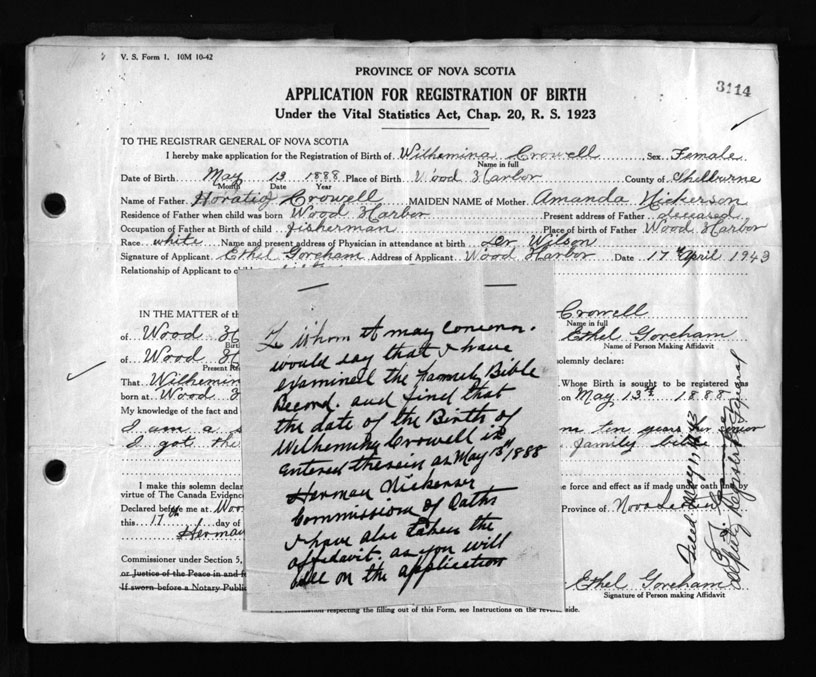 V. S. Form 1. 10M 10-42
PROVINCE OF NOVA SCOTIA
3114
APPLICATION FOR REGISTRATION OF BIRTH
Under the Vital Statistics Act, Chap. 20, R. S. 1923
TO THE REGISTRAR GENERAL OF NOVA SCOTIA
I hereby make application for the Registration of Birth of Wilhemina Crowell Sex Female
Name in full
Date of Birth May 13 1888 Place of Birth Wood Harbor County of Shelburne
Month Date Year
Name of Father Horatio Crowell MAIDEN NAME of Mother Amanda Nickerson
Residence of Father when child was born Wood Harbor Present address of Father deceased
Occupation of Father at Birth of child fisherman Place of birth of Father Wood Harbor
Race white Name and present address of Physician in attendance at birth Dr Wilson
Signature of Applicant Ethel Goreham Address of Applicant Wood Harbor Date 17th April 1943
Relationship of Applicant to
IN THE MATTER of the Crowell
Name in full
of Wood H Ethel Goreham
Name of Person Making Affidavit
of Wood H solemnly declare:
Present Re
That Wilhemin Whose Birth is sought to be registered was
born at Wood on May 13th 1888
My knowledge of the fact and
I am a s ten years her senior
I got the family bible
I make this solemn declara e force and effect as if made under oath by
virtue of The Canada Evidence
Declared before me at Woo Province of Nova Scotia
this 17th day of
Herman
Commissioner under Section 5,
or Justice of the Peace in and f
If sworn before a Notary Publi
Ethel Goreham
Signature of Person making Affidavit
respecting the filling out of this Form, see Instructions on the reverse side.
To whom it may concern.
would say that I have
examined the Family Bible
Record. and find that
the date of the Birth of
Wilhemina Crowell is
entered therein as May 13th 1888
Herman Nickerson
Commission of Oaths
I have also taken the
affidavit. as you will
see on the application
Filed May 11, 1943
Deputy Registrar General